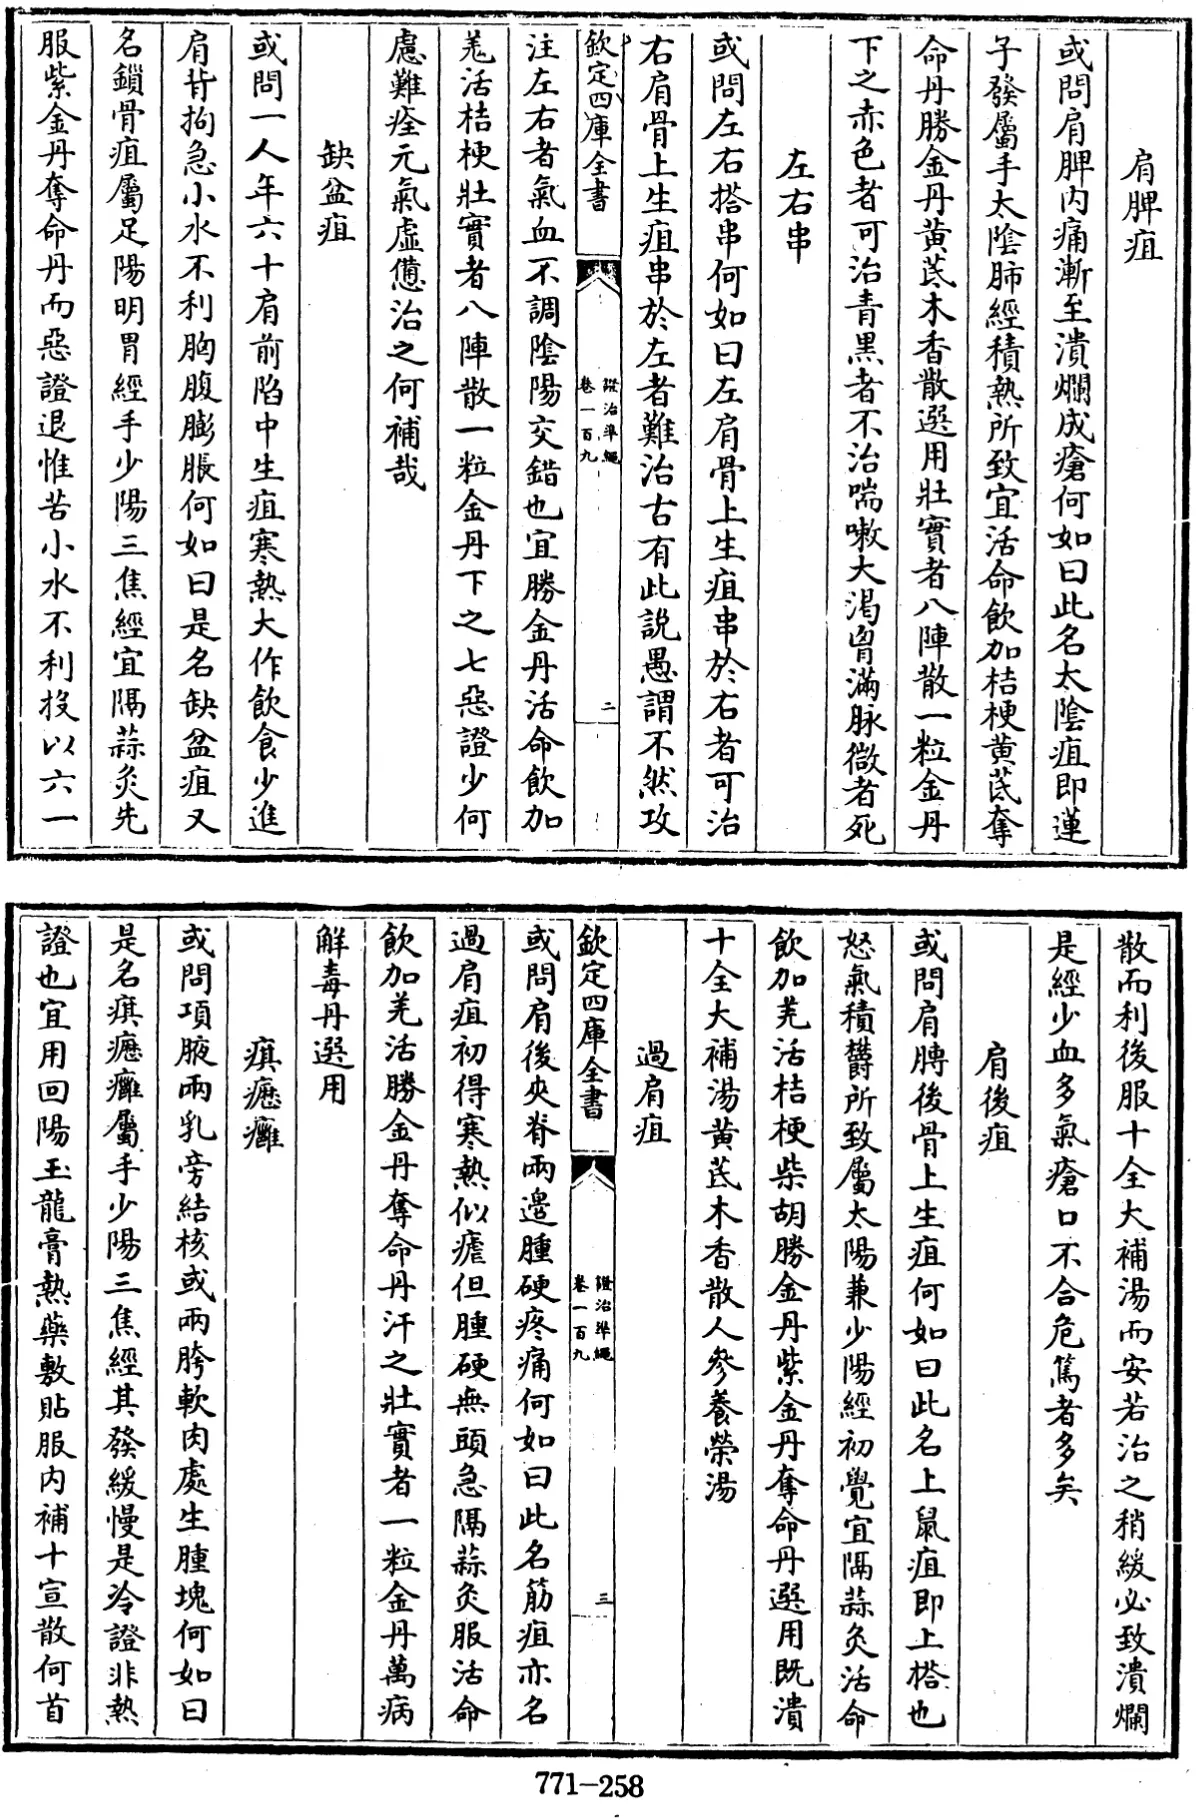 肩脾疽
或問肩脾内痛漸至潰爛成瘡何如曰此名太隂疽即蓮
子發屬手太隂肺經積熱所致宜活命飲加桔梗黄芪奪
命丹勝金丹黄芪木香散選用壯實者八陣散一粒金丹
下之赤色者可治青黑者不治喘嗽大渴胷滿脉微者死
左右串
或問左右搭串何如曰左肩骨上生疽串於右者可治
右肩骨上生疽串於左者難治古有此說愚謂不然攻
欽定四庫全書
證治準繩
卷一百九
二
注左右者氣血不調隂陽交錯也宜勝金丹活命飲加
羌活桔梗壯實者八陣散一粒金丹下之七惡證少何
慮難痊元氣虚憊治之何補哉
缺盆疽
或問一人年六十肩前陷中生疽寒熱大作飲食少進
肩背拘急小水不利胸腹膨脹何如曰是名缺盆疽又
名鎖骨疽屬足陽明胃經手少陽三焦經宜隔蒜灸先
服紫金丹奪命丹而惡證退惟苦小水不利投以六一
散而利後服十全大補湯而安若治之稍緩必致潰爛
是經少血多氣瘡口不合危篤者多矣
肩後疽
或問肩膊後骨上生疽何如曰此名上鼠疽即上搭也
怒氣積欝所致屬太陽兼少陽經初覺宜隔蒜灸活命
飲加羌活桔梗柴胡勝金丹紫金丹奪命丹選用既潰
十全大補湯黄芪木香散人參養榮湯
過肩疽
欽定四庫全書
證治準繩
卷一百九
三
或問肩後夾脊兩邉腫硬疼痛何如曰此名筋疽亦名
過肩疽初得寒熱似瘧但腫硬無頭急隔蒜灸服活命
飲加羌活勝金丹奪命丹汗之壯實者一粒金丹萬病
解毒丹選用
㾺癧癰
或問項腋兩乳旁結核或兩胯軟肉處生腫塊何如曰
是名㾺癧癰屬手少陽三焦經其發緩慢是冷證非熱
證也宜用回陽玉龍膏熱藥敷貼服内補十宣散何首
771-258